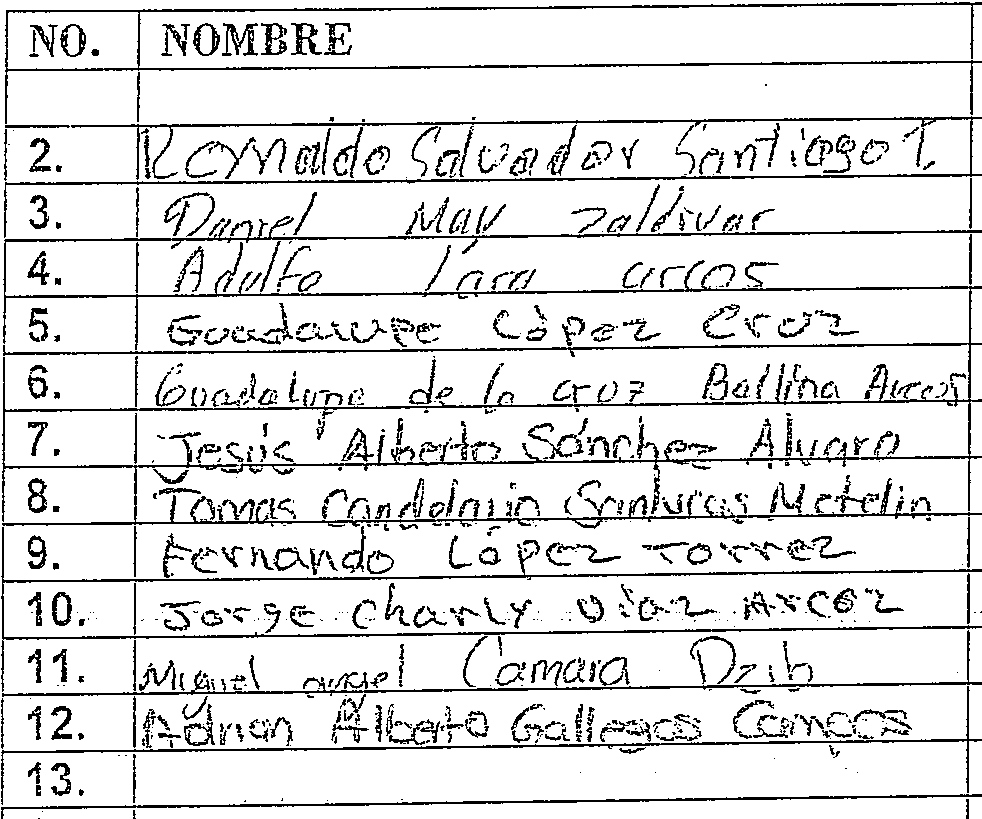 NO. NOMBRE
2. Romaldo Salvador Santiago T.
3. Daniel May Zaldivar
4. Adulfo Lara arcos
5. Guadalupe López Cruz
6. Guadalupe de la cruz Ballina Arcos
7. Jesús Alberto Sánchez Alvaro
8. Tomas Candelario Metelin
9. Fernando López Torrez
10. Jorge Charly Diaz Arcoz
11. Miguel angel Camara Dzib
12. Adrian Alberto Gallegos Campos
13.